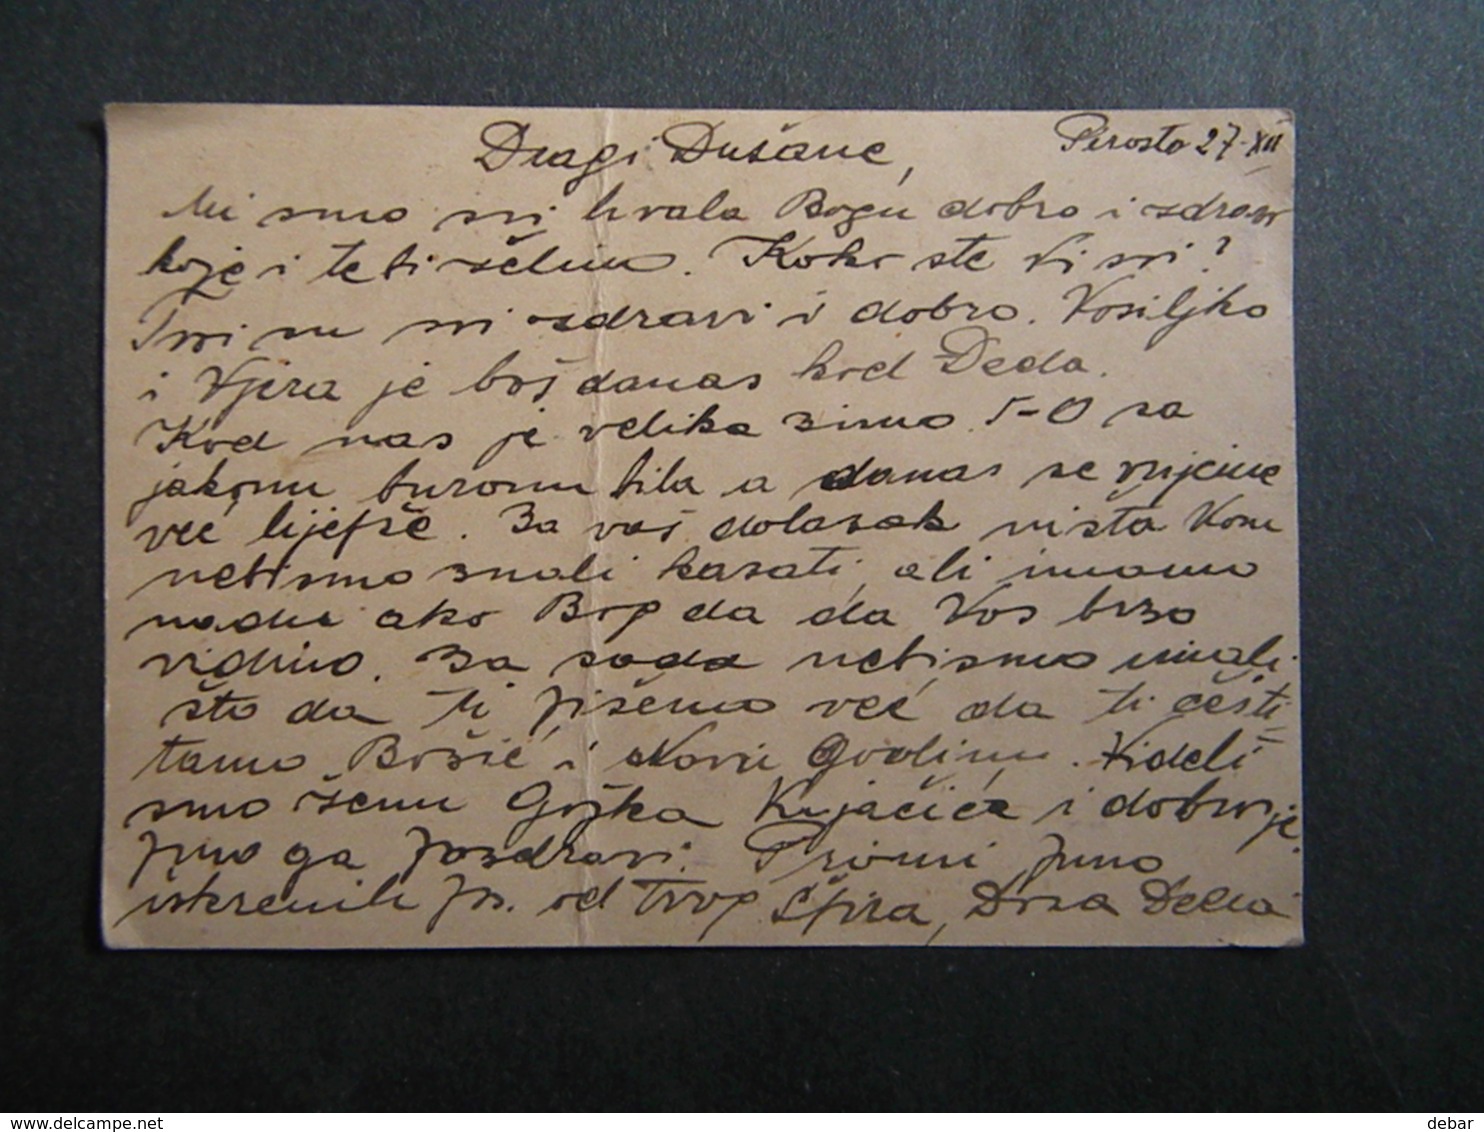 Perasto 27. XII
Dragi Dušane,
Mi smo svi hvala Bogu dobro i zdravo
koje i tebi želimo. Kako ste Vi svi?
Tvoi su svi zdravi i dobro. Vasiljka
i Vjera je baš danas kod Deda.
Kod nas je velika zima 5-0 sa
jakom burom bila a danas se vrijeme
već ljepše. Za vaš dolazak ništa Vam
nebismo znali kazati, ali imamo
nadu ako Bog da da Vas brzo
vidimo. Za sada nebismo imali
što da ti pišemo već da ti česti
tamo Božić i Novu Godinu. Videli
smo ženu Gojka Kujačića i dobro je
puno ga pozdravi. Primi puno
iskrenih poz. od tvog Špira, Doza Desa
debar